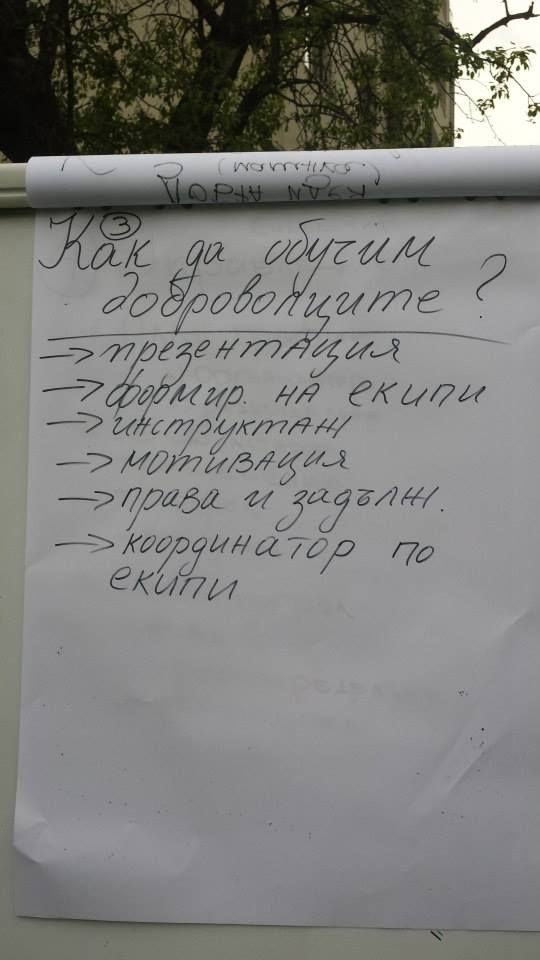 ③
Как да обучим
доброволците ?
→ презентация
→ формир. на екипи
→ инструктаж
→ мотивация
→ права и задълж.
→ координатор по
екипи